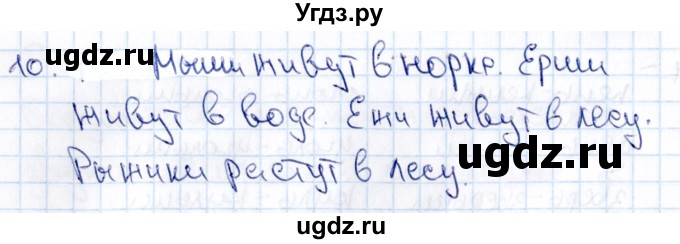 Угдз.ру
ugdz.ru ugdz.ru
10. Мыши живут в норке. Ерши
живут в воде. Ежи живут в лесу.
ugdz.ru
Рыжики растут в лесу.
ugdz.ru
ugdz.ru